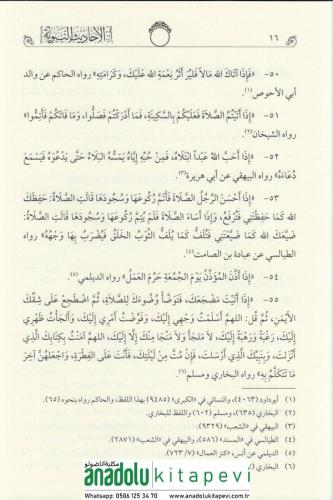 ١٦
الأحاديث النبوية
٥٠- «فَإِذَا آتَاكَ اللهُ مَالاً فَلْيُرَ أَثَرُ نِعْمَةِ اللهِ عَلَيْكَ، وَكَرَامَتِهِ» رواه الحاكم عن والد
أبي الأحوص(١).
٥١- «إِذَا أَتَيْتُمُ الصَّلاَةَ فَعَلَيْكُمْ بِالسَّكِينَةِ، فَمَا أَدْرَكْتُمْ فَصَلُّوا، وَمَا فَاتَكُمْ فَأَتِمُّوا»
رواه الشيخان(٢).
٥٢- «إِذَا أَحَبَّ اللهُ عَبْداً ابْتَلاَهُ، فَمِنْ حُبِّهِ إِيَّاهُ يَمَسُّهُ البَلاَءُ حَتَّى يَدْعُوَهُ فَيَسْمَعَ
دُعَاءَهُ» رواه البيهقي عن أبي هريرة(٣).
٥٣- «إِذَا أَحْسَنَ الرَّجُلُ الصَّلاَةَ فَأَتَمَّ رُكُوعَهَا وَسُجُودَهَا قَالَتِ الصَّلاَةُ: حَفِظَكَ
اللهُ كَمَا حَفِظْتَنِي فَتُرْفَعُ، وَإِذَا أَسَاءَ الصَّلاَةَ فَلَمْ يُتِمَّ رُكُوعَهَا وَسُجُودَهَا قَالَتِ الصَّلاَةُ:
ضَيَّعَكَ اللهُ كَمَا ضَيَّعْتَنِي فَتُلَفُّ كَمَا يُلَفُّ الثَّوْبُ الخَلَقُ فَيُضْرَبُ بِهَا وَجْهُهُ» رواه
الطيالسي عن عبادة بن الصامت(٤).
٥٤- «إِذَا أَذَّنَ المُؤَذِّنُ يَوْمَ الجُمُعَةِ حَرُمَ العَمَلُ» رواه الديلمي(٥).
٥٥- «إِذَا أَتَيْتَ مَضْجَعَكَ، فَتَوَضَّأْ وُضُوءَكَ لِلصَّلاَةِ، ثُمَّ اضْطَجِعْ عَلَى شِقِّكَ
الأَيْمَنِ، ثُمَّ قُلْ: اللهم أَسْلَمْتُ وَجْهِي إِلَيْكَ، وَفَوَّضْتُ أَمْرِي إِلَيْكَ، وَأَلْجَأْتُ ظَهْرِي
إِلَيْكَ، رَغْبَةً وَرَهْبَةً إِلَيْكَ، لاَ مَلْجَأَ وَلاَ مَنْجَا مِنْكَ إِلاَّ إِلَيْكَ، اللهم آمَنْتُ بِكِتَابِكَ الَّذِي
أَنْزَلْتَ، وَبِنَبِيِّكَ الَّذِي أَرْسَلْتَ، فَإِنْ مُتَّ مِنْ لَيْلَتِكَ، فَأَنْتَ عَلَى الفِطْرَةِ، وَاجْعَلْهُنَّ آخِرَ
مَا تَتَكَلَّمُ بِهِ» رواه البخاري ومسلم(٦).
(١) أبو داود (٤٠٦٣)، والنسائي في «الكبرى» (٩٤٨٥) بهذا اللفظ، والحاكم رواه بنحوه (٦٥).
(٢) البخاري (٦٣٥)، مسلم (٦٠٢) واللفظ للبخاري.
(٣) البيهقي في «الشعب» (٩٣٢٩).
(٤) الطيالسي في «المسند» (٥٨٦)، والبيهقي في «الشعب» (٢٨٧١).
(٥) الديلمي عن أنس، «كنز العمال» (٧/ ٧٢٣).
(٦) البخاري
مكتبة الأناضولو
anadolu kitapevi
Whatsapp: 0506 125 34 70 - www.anadolukitapevi.com.tr